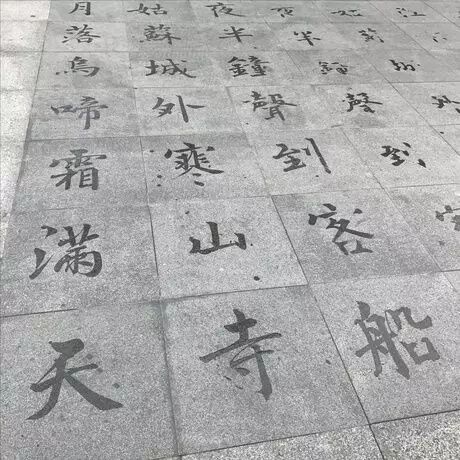 月落烏啼霜滿天
姑蘇城外寒山寺
夜半鐘聲到客船
夜半鐘聲到
姑
江